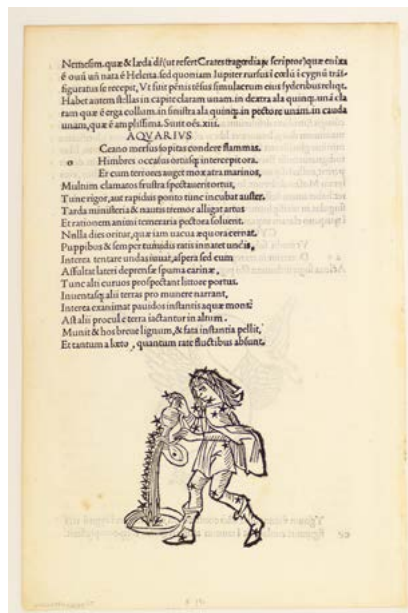 Nemesim. quæ & læda dr̄(ut refert Crates tragœdiaꝝ scriptor)quæ enixa
é ouū uñ nata é Helena. sed quoniam Iupiter rursus ī cœlū ī cygnū trās⸗
figuratus se recepit, Vt sīut pēnis tēsus simulacrum eius syderibus reliqt.
Habet autem stellas in capite claram unam. in dextra ala quinq. unā cla
ram quæ é erga collum. in sinistra ala quinq. in pectore unam. in cauda
unam, quæ é amplissima. Sunt oēs. xiii.
AQVARIVS
Ceano mersus sopitas condere flammas.
o Himbres occasus ortusq; intercepit ora.
Et cum teriores auget mox atra marinos,
Multium clamatos frustra spectaueritortus,
Tunc rigor, aut rapidus ponto tunc incubat auster.
Tarda ministeria & nautis tremor alligat artus
Et rationem animi temeraria pectora soluent.
Nulla dies oritur, quæ iam uacua æquora cernat.
Puppibus & semper tumidis ratis innatet undis,
Interea tentare undas iuuat, aspera sed cum
Assultat lateri deprensæ spuma carinæ,
Tunc alti curuos prospectant littore portus.
Inuentasq; alii terras pro munere narrant,
Interea exanimat pauidos instantis aquæ monts
Ast alii procul e terra iactantur in altum.
Munit & hos breue lignum, & fata instantia pellit,
Et tantum a lœto, quantum rate fluctibus absunt.